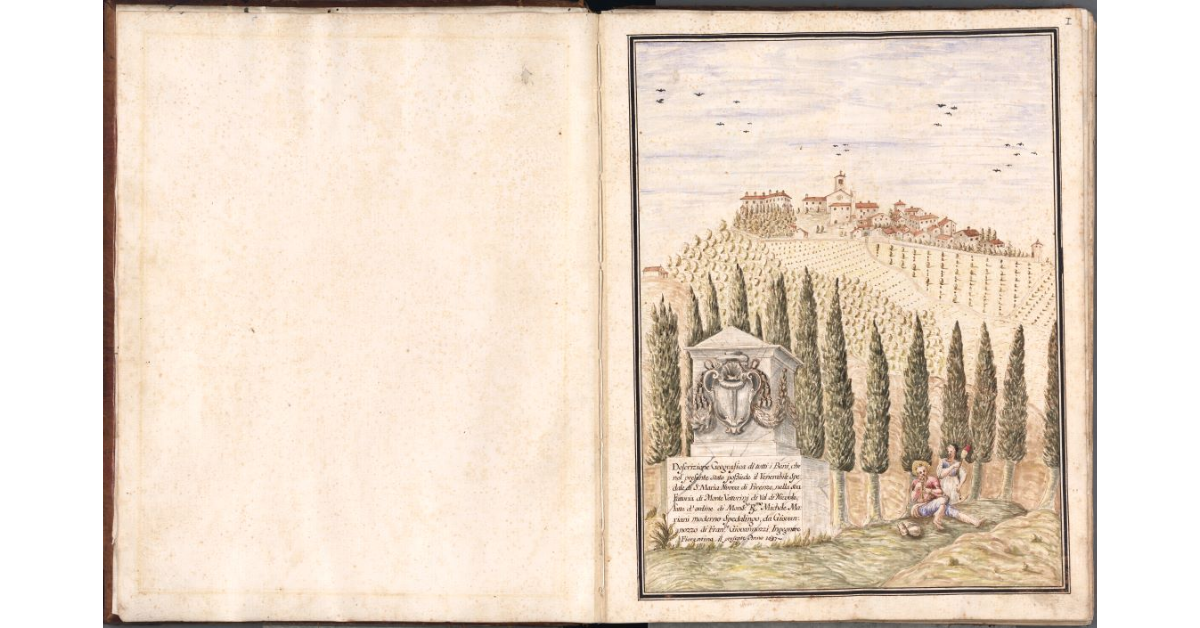 1
Descrizione Geografica di tutti i Beni, che
nel presente Stato possiede il Venerabile Spe-
dale di S. Maria Nuova di Firenze, nella sua
Fattoria di Monte Vetturini di Val di Nievole,
fatta d'ordine di Mons.re R.mo Michele Ma
riani moderno Spedalingo, da Gioven-
nozzo di Fran.co Giovannozzi Ingegnere
Fiorentino il presente Anno